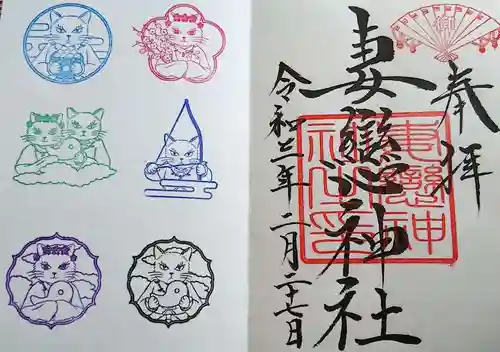 奉拝
妻戀神社
令和二年 二月二十七日
妻戀神
社之印